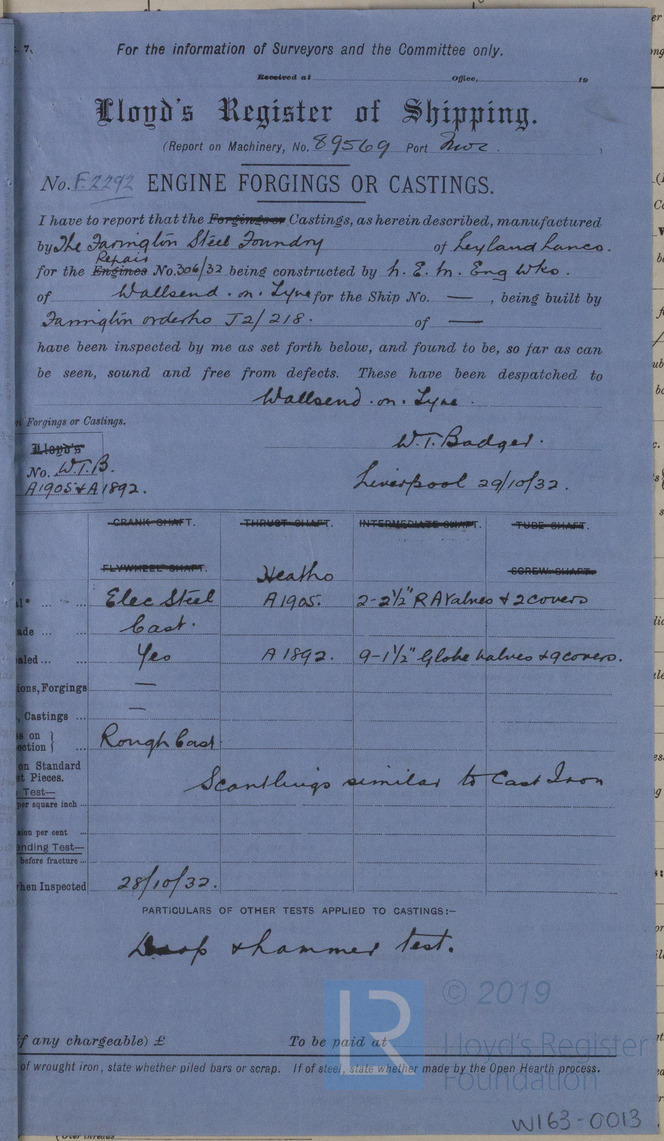 7.
For the information of Surveyors and the Committee only.
Received at Office, 19
Lloyd's Register of Shipping.
(Report on Machinery, No. 89569 Port Nwc )
No. F.2292 ENGINE FORGINGS OR CASTINGS.
I have to report that the Forgings or Castings, as herein described, manufactured
by The Farington Steel Foundry of Leyland Lancs.
Repair
for the Engines No. 306/32 being constructed by N. E. M. Eng Wks.
of Wallsend. on. Tyne for the Ship No. — , being built by
Farington order No J2/218. of —
have been inspected by me as set forth below, and found to be, so far as can
be seen, sound and free from defects. These have been despatched to
Wallsend. on. Tyne.
Forgings or Castings.
W.T. Badger.
Lloyd's
No. W.T.B.
A1905 & A1892.
Liverpool 29/10/32.
CRANK SHAFT. THRUST SHAFT. INTERMEDIATE SHAFT. TUBE SHAFT.
FLYWHEEL SHAFT. Heat No SCREW SHAFT.
Elec Steel A1905. 2-2½" R A Valves & 2 covers
ade ... Cast.
aled ... Yes A1892. 9-1½" Globe Valves & 9 covers.
ions, Forgings —
, Castings ... —
s on
ection } ... Rough Cast
on Standard
st Pieces. Scantlings similar to Cast Iron
Test—
per square inch ...
sion per cent ...
ending Test—
before fracture ...
hen Inspected 28/10/32.
PARTICULARS OF OTHER TESTS APPLIED TO CASTINGS:—
Drop & hammer test.
LR © 2019
Lloyd's Register
Foundation
if any chargeable) £ To be paid at
of wrought iron, state whether piled bars or scrap. If of steel, state whether made by the Open Hearth process.
W163-0013